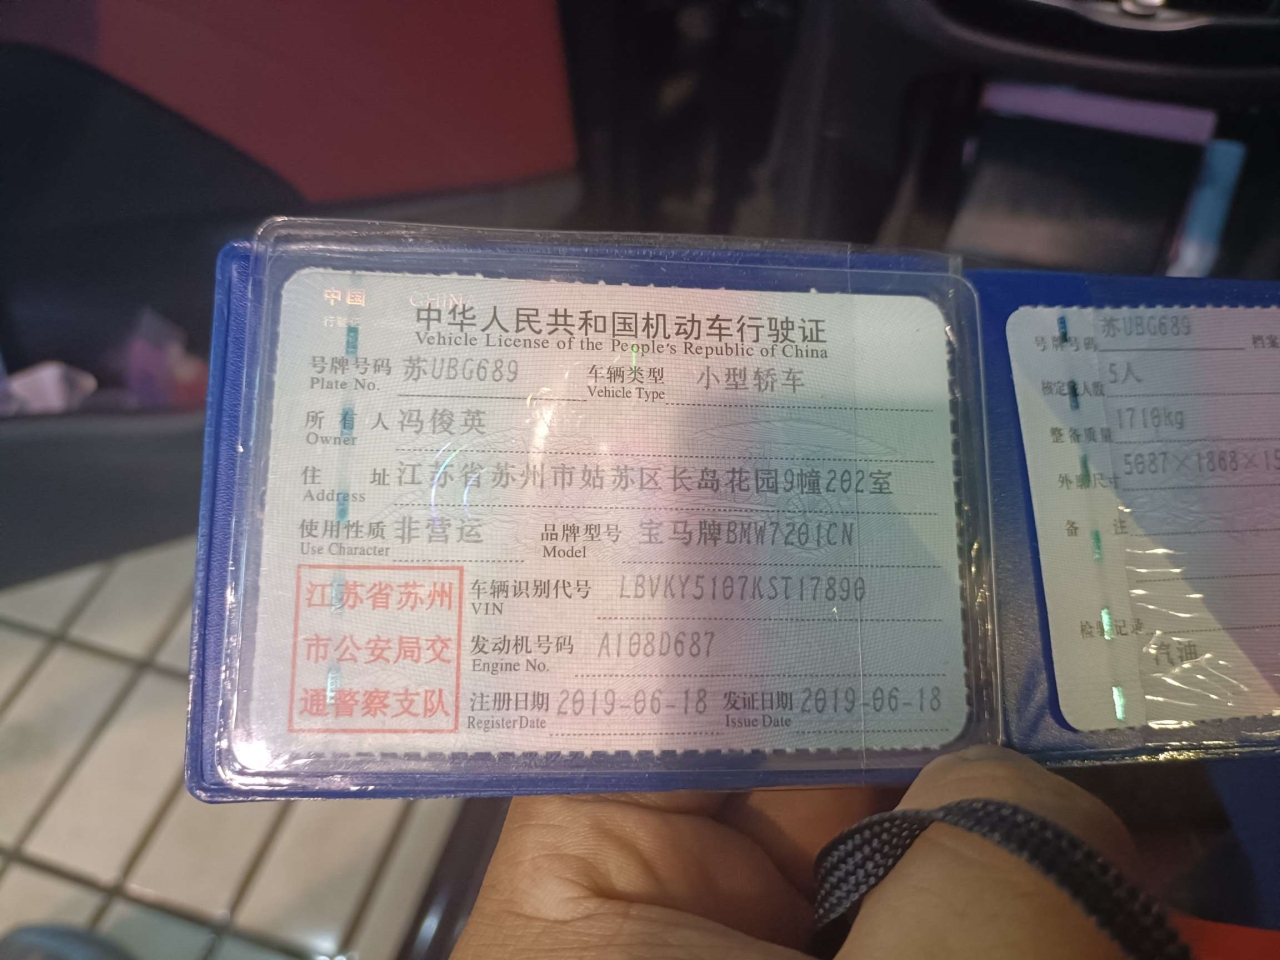 中国 CHIN
行驶证
中华人民共和国机动车行驶证
Vehicle License of the People's Republic of China
号牌号码 苏UBG689 车辆类型 小型轿车
Plate No. Vehicle Type
所有人 冯俊英
Owner
住址 江苏省苏州市姑苏区长岛花园9幢202室
Address
使用性质 非营运 品牌型号 宝马牌BMW7201CN
Use Character Model
江苏省苏州
市公安局交
通警察支队
车辆识别代号 LBVKY5107KST17890
VIN
发动机号码 A108D687
Engine No.
注册日期 2019-06-18 发证日期 2019-06-18
Register Date Issue Date
号牌号码 苏UBG689 档案
核定载人数 5人
整备质量 1710kg
外廓尺寸 5087×1868×15
备注
检验记录
汽油